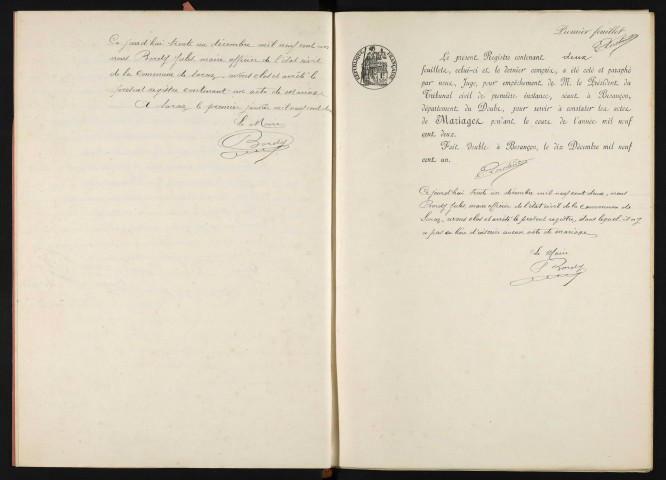 Ce jourd'hui trente un décembre mil neuf cent un
nous Bordy Jules, maire officier de l'état civil
de la commune de Loray, avons clos et arrêté le
présent registre contenant un acte de mariage
A Loray le premier janvier mil neuf cent deux
Le Maire
Bordy
Premier feuillet
RÉPUBLIQUE FRANÇAISE
Le présent Registre contenant deux
feuillets, celui-ci et le dernier compris, a été coté et paraphé
par nous, Juge, pour empêchement de M. le Président du
Tribunal civil de première instance, séant à Besançon,
département du Doubs, pour servir à constater les actes
de Mariages pendant le cours de l'année mil neuf
cent deux.
Fait double à Besançon, le dix Décembre mil neuf
cent un.
Ce jourd'hui trente un décembre mil neuf cent deux, nous
Bordy Jules, maire officier de l'état civil de la commune de
Loray, avons clos et arrêté le présent registre, dans lequel il n'y
a pas eu lieu d'inscrire aucun acte de mariage
Le Maire
Bordy